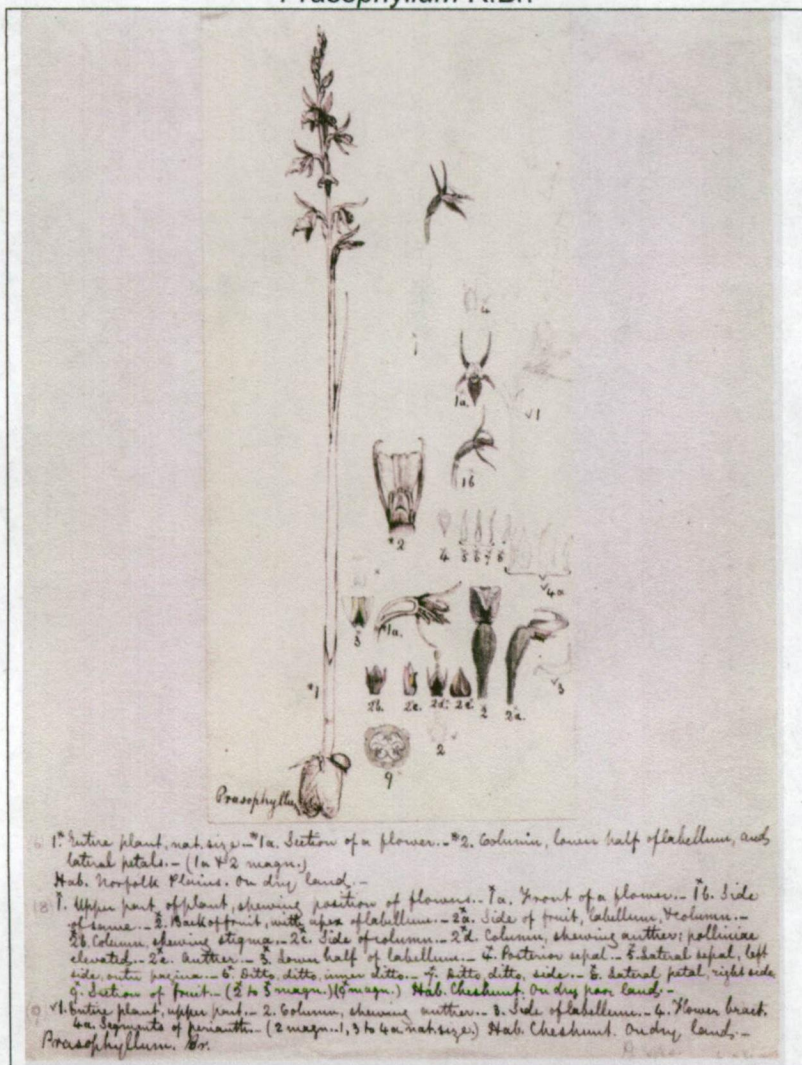 Prasophyllum R.Br.
4
1a.
v1
1b
*2
4 5 6 7 8
v4a
3
*1a.
*1
2b. 2c. 2d. 2e. 2 2a.
v3
9
2
Prasophyllum
6 1* Entire plant, nat. size — *1a. Section of a flower. — *2. Column, lower half of labellum, and
lateral petals. — (1a & 2 magn.)
Hab. Norfolk Plains. On dry land. —
18 1. Upper part of plant, shewing position of flowers. — 1a. Front of a flower. — 1b. Side
of same. — 2. Back of fruit, with apex of labellum. — 2a. Side of fruit, labellum, & column. —
2b. Column, shewing stigma. — 2c. Side of column. — 2d. Column, shewing anther; polliniae
elevated. — 2e. Anther. — 3. Lower half of labellum. — 4. Posterior sepal. — 5. Lateral sepal, left
side, outer pagina. — 6. Ditto, ditto, inner ditto. — 7. Ditto, ditto, side. — 8. Lateral petal, right side
9. Section of fruit. — (2 to 3 magn.) (9 magn.) Hab. Cheshunt. On dry poor land. —
9 v1. Entire plant, upper part. — 2. Column, shewing anther. — 3. Side of labellum. — 4. Flower bract.
4a. Segments of perianth. — (2 magn. 1, 3 to 4a nat. size.) Hab. Cheshunt. On dry land. —
Prasophyllum. Br.